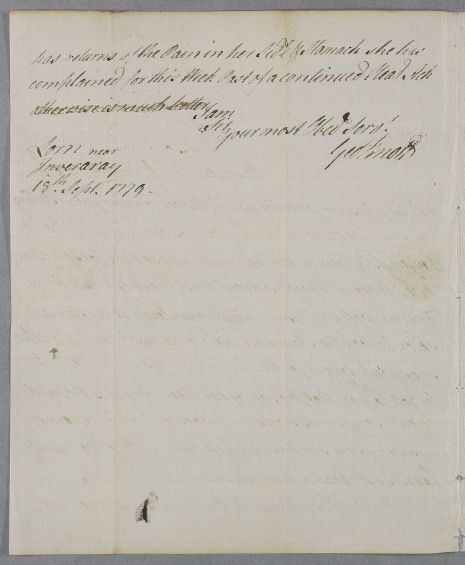 has returns of the Pain in her Side & Stomach she has
complained for this Week Past of a continued Head Ach
otherwise is much better
I am
Sir
Your most Obed. Serv.t
Lorn near
Inveraray
18th Sept. 1779